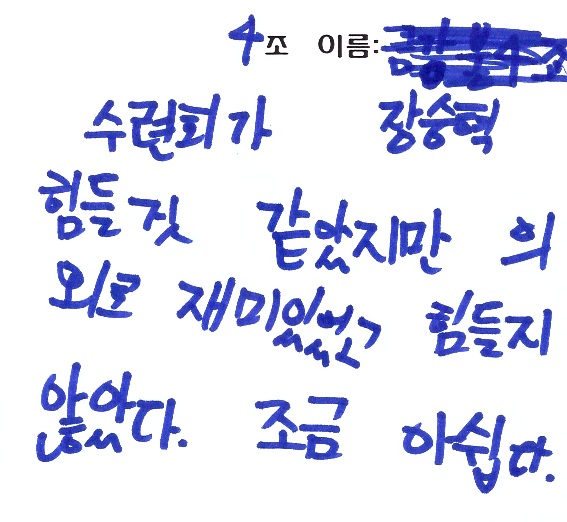 4조 이름:
수련회가 장승혁
힘들 것 같았지만 의
외로 재미있었고 힘들지
않았다. 조금 아쉽다.